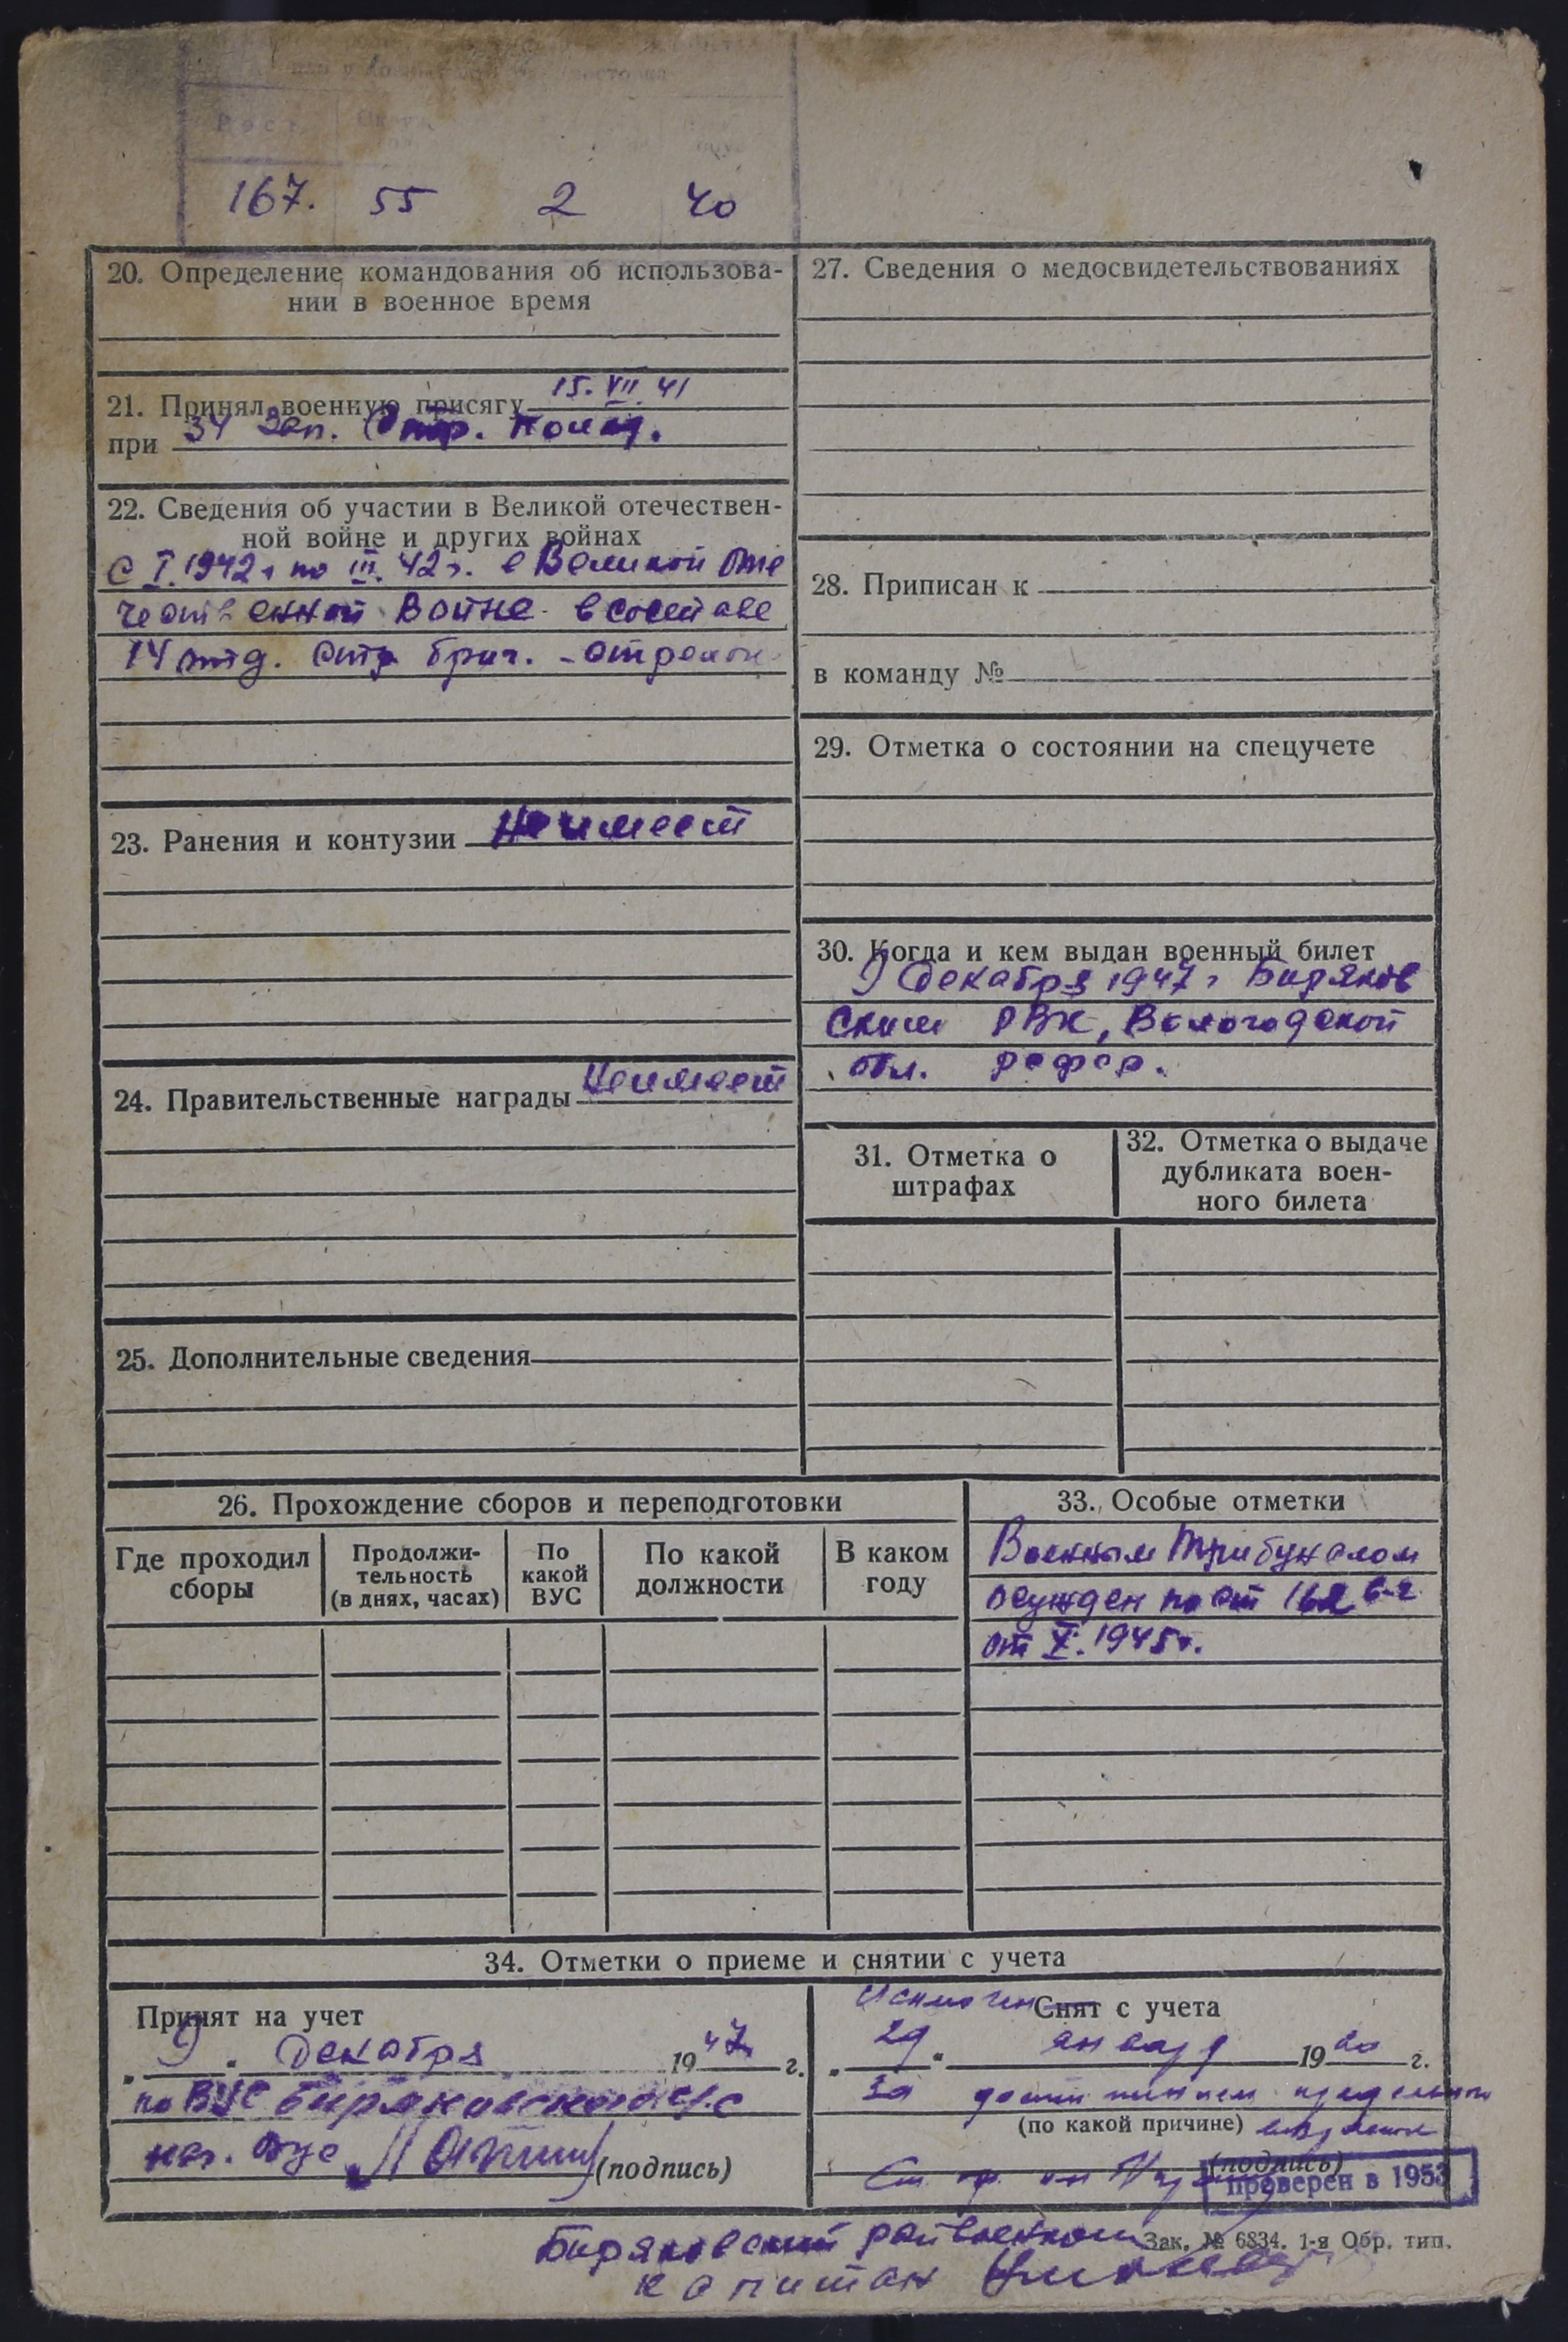 Рост
167. 55 2 40
20. Определение командования об использова-
нии в военное время
21. Принял военную присягу 15.VII.41
при 34 Зап. Стр. Полку.
22. Сведения об участии в Великой отечествен-
ной войне и других войнах
С I.1942г по III.42г. в Великой Оте
чественной Войне в составе
14 отд. Стр бриг. -
23. Ранения и контузии Неимеет
24. Правительственные награды Неимеет
25. Дополнительные сведения
26. Прохождение сборов и переподготовки
Где проходил
сборы
Продолжи-
тельность
(в днях, часах)
По
какой
ВУС
По какой
должности
В каком
году
27. Сведения о медосвидетельствованиях
28. Приписан к
в команду №
29. Отметка о состоянии на спецучете
30. Когда и кем выдан военный билет
9 декабря 1947г Биряков
ским РВК, Вологодской
обл. РСФСР.
31. Отметка о
штрафах
32. Отметка о выдаче
дубликата воен-
ного билета
33. Особые отметки
Военным Трибуналом
осужден по ст 162 б-г
от X. 1945г.
34. Отметки о приеме и снятии с учета
Принят на учет
„ 9 “ Декабря 1947 г.
по ВУС Биряковского с/с
нач. ВУС (подпись)
Исключен Снят с учета
„ 29 “ января 1960 г.
За достижением предельного
(по какой причине) возраста
(подпись)
проверен в 1953
Биряковский райвоенком
Зак. № 6834. 1-я Обр. тип.
капитан